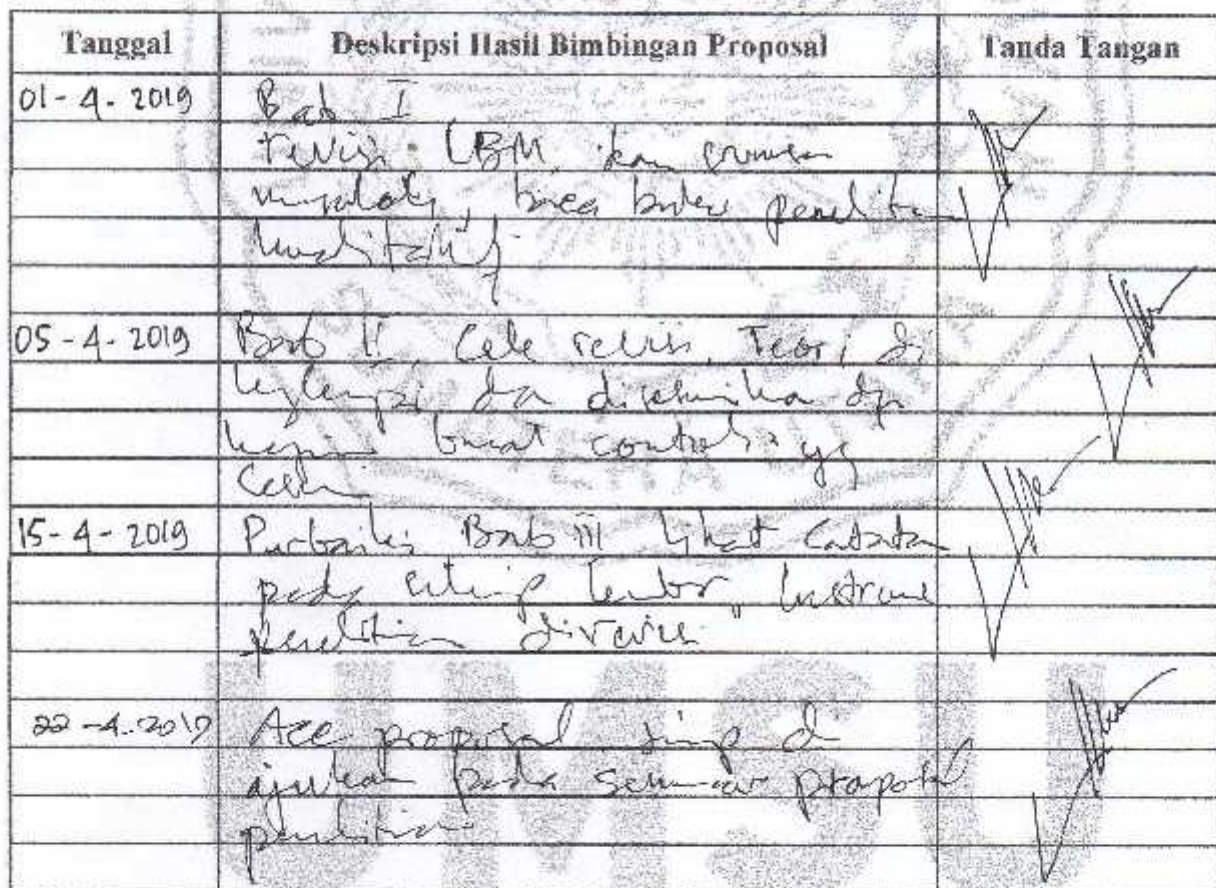 Tanggal Deskripsi Hasil Bimbingan Proposal Tanda Tangan
01-4-2019 Bab I
revisi LBM dan rumusan
masalah, baca buku penelitian
kualitatif
05-4-2019 Bab II, Cek revisi, Teori di
lengkapi dan dan
buat yg
15-4-2019 Perbaiki Bab III lihat Catatan
pada setiap lembar, Instrumen
penelitian direvisi
22-4-2019 Acc proposal di
ajukan pada seminar proposal
penelitian
UMSU